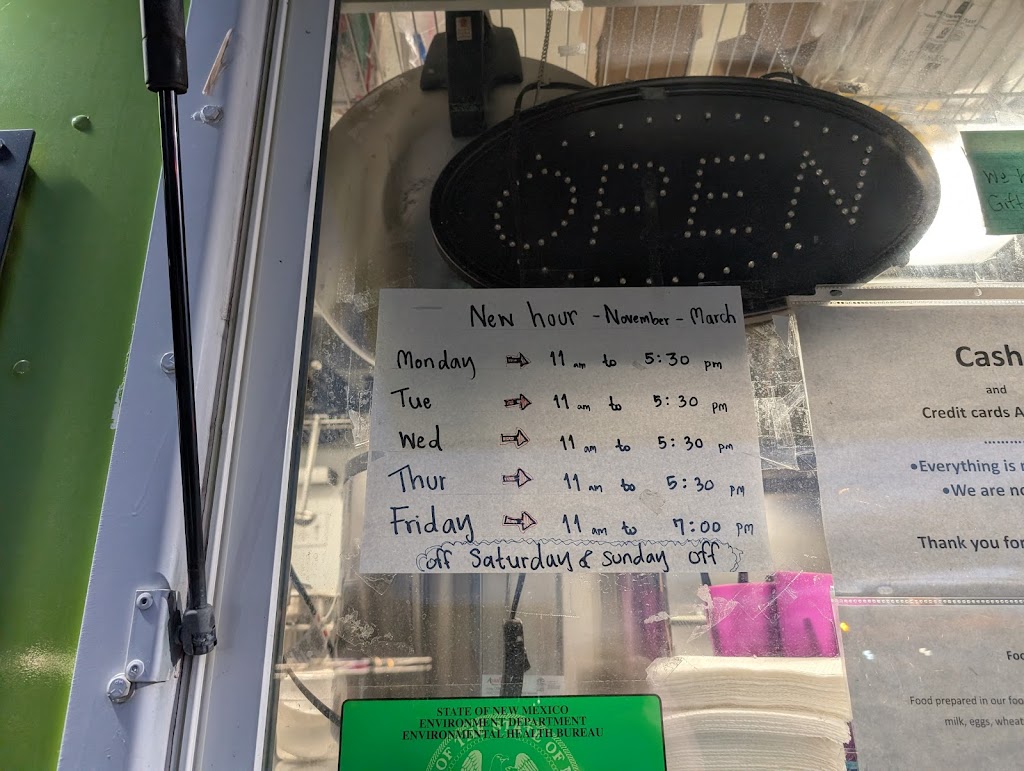 OPEN
We
Gift
New hour - November - March
Monday ⇨ 11 am to 5:30 pm
Tue ⇨ 11 am to 5:30 pm
Wed ⇨ 11 am to 5:30 pm
Thur ⇨ 11 am to 5:30 pm
Friday ⇨ 11 am to 7:00 pm
off Saturday & sunday off
Cash
and
Credit cards A
•Everything is
•We are no
Thank you for
Foo
Food prepared in our foo
milk, eggs, wheat
STATE OF NEW MEXICO
ENVIRONMENT DEPARTMENT
ENVIRONMENTAL HEALTH BUREAU